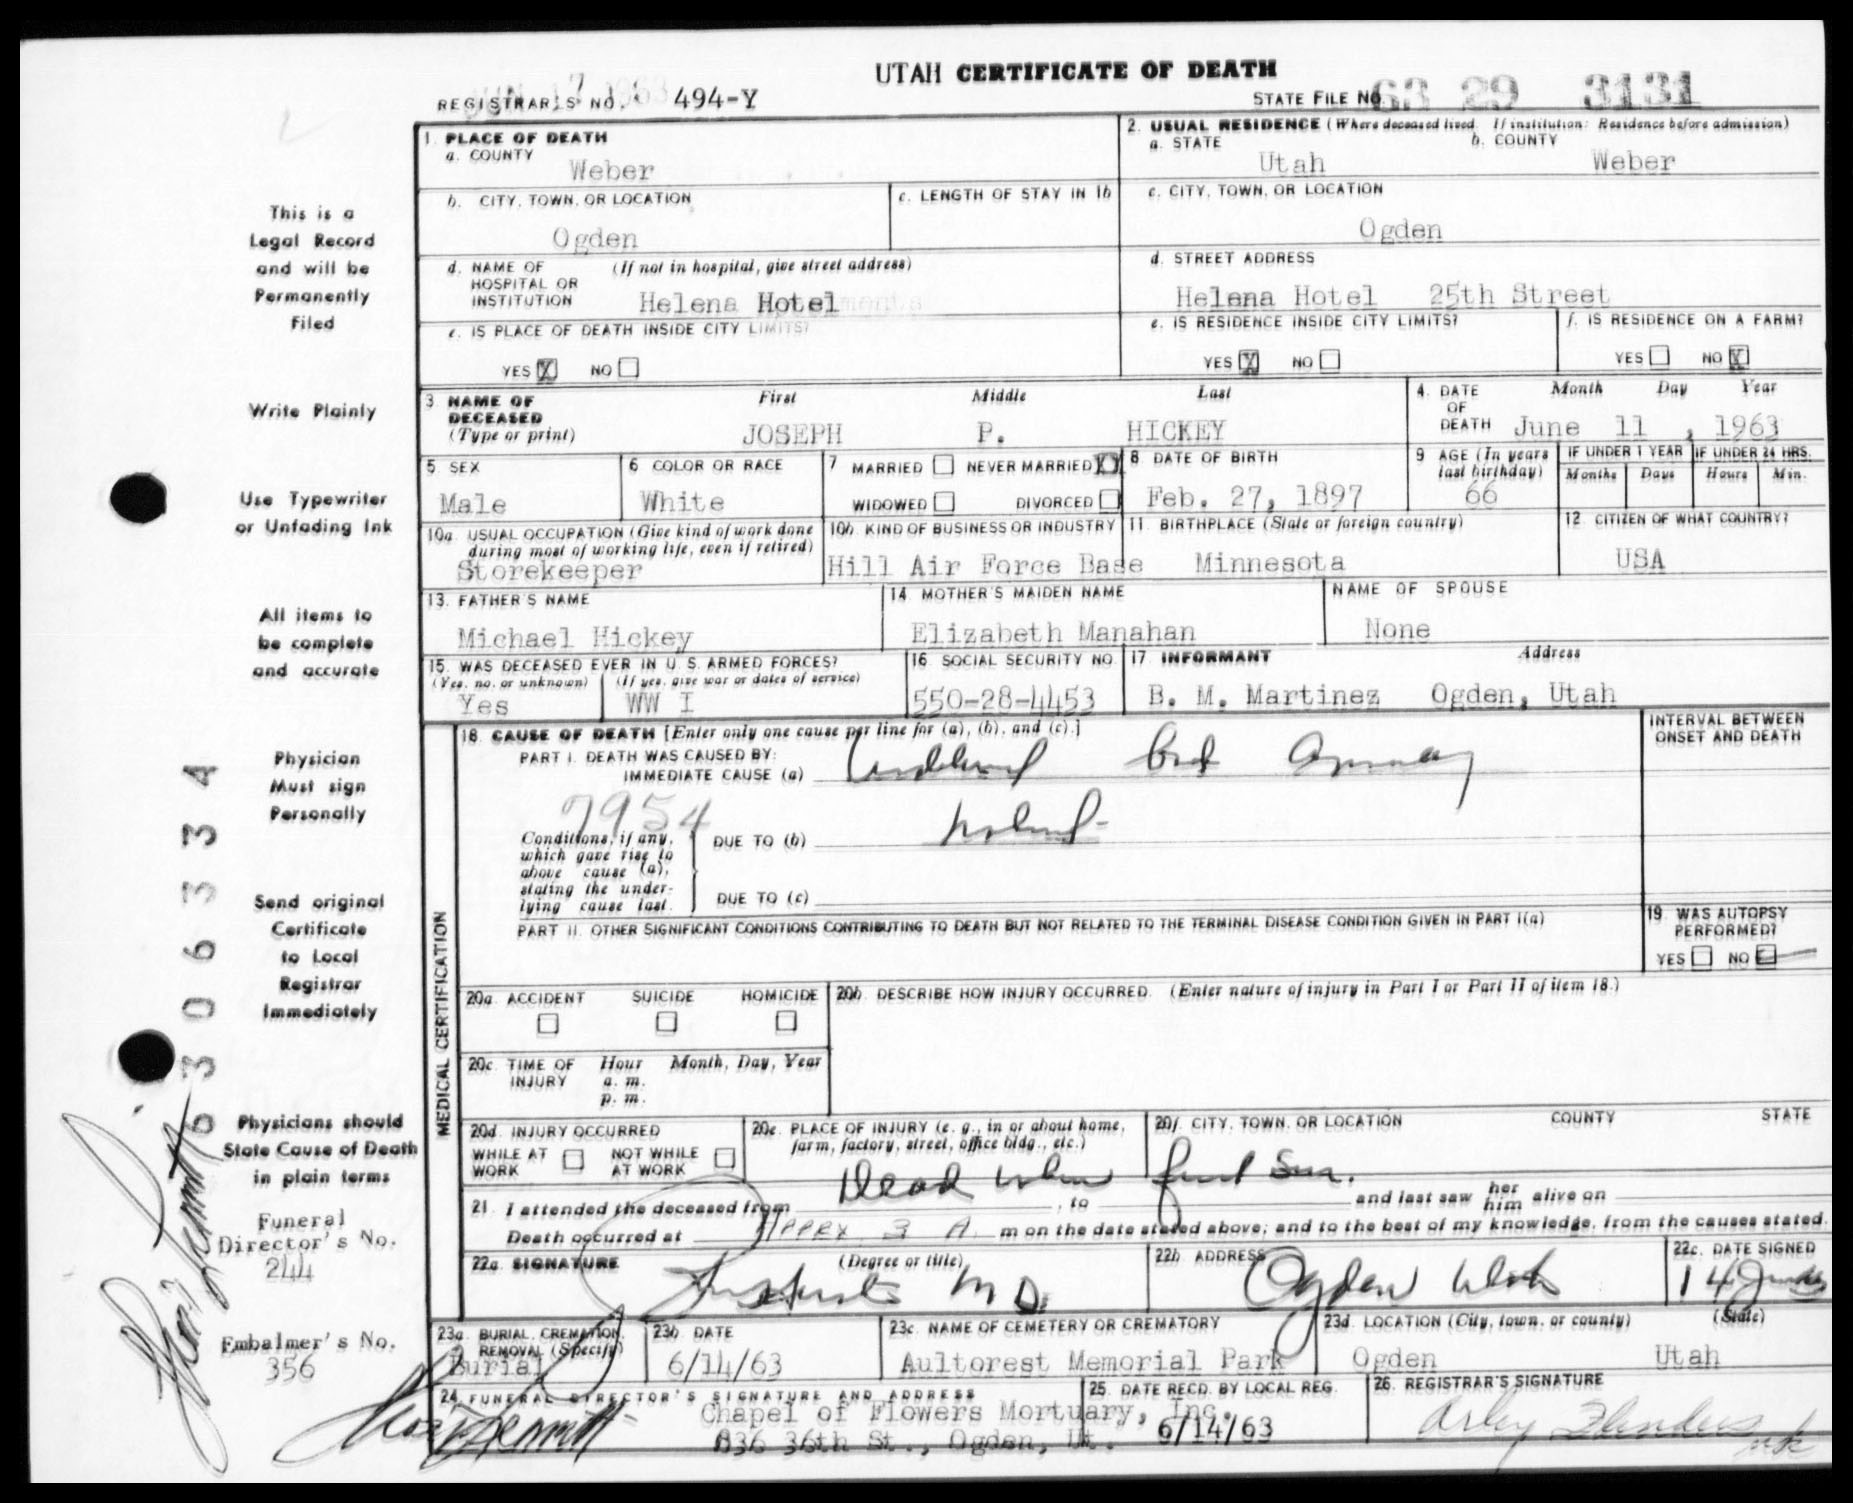 UTAH CERTIFICATE OF DEATH
REGISTRAR'S NO. 494-Y
STATE FILE NO. 63 29 3131
This is a
Legal Record
and will be
Permanently
Filed
Write Plainly
Use Typewriter
or Unfading Ink
All items to
be complete
and accurate
Physician
Must sign
Personally
Send original
Certificate
to Local
Registrar
Immediately
Physicians should
State Cause of Death
in plain terms
Funeral
Director's No.
244
Embalmer's No.
356
63063334
1. PLACE OF DEATH
a. COUNTY
Weber
b. CITY, TOWN, OR LOCATION
Ogden
c. LENGTH OF STAY IN 1b
d. NAME OF HOSPITAL OR INSTITUTION (If not in hospital, give street address)
Helena Hotel
e. IS PLACE OF DEATH INSIDE CITY LIMITS?
YES X NO
2. USUAL RESIDENCE (Where deceased lived. If institution: Residence before admission)
a. STATE
Utah
b. COUNTY
Weber
c. CITY, TOWN, OR LOCATION
Ogden
d. STREET ADDRESS
Helena Hotel 25th Street
e. IS RESIDENCE INSIDE CITY LIMITS?
YES X NO
f. IS RESIDENCE ON A FARM?
YES NO X
3. NAME OF DECEASED (Type or print)
First Middle Last
JOSEPH P. HICKEY
4. DATE OF DEATH
Month Day Year
June 11, 1963
5 SEX
Male
6 COLOR OR RACE
White
7 MARRIED NEVER MARRIED X
WIDOWED DIVORCED
8 DATE OF BIRTH
Feb. 27, 1897
9 AGE (In years last birthday)
66
IF UNDER 1 YEAR
Months Days
IF UNDER 24 HRS.
Hours Min.
10a. USUAL OCCUPATION (Give kind of work done during most of working life, even if retired)
Storekeeper
10b. KIND OF BUSINESS OR INDUSTRY
Hill Air Force Base
11. BIRTHPLACE (State or foreign country)
Minnesota
12. CITIZEN OF WHAT COUNTRY?
USA
13. FATHER'S NAME
Michael Hickey
14 MOTHER'S MAIDEN NAME
Elizabeth Manahan
NAME OF SPOUSE
None
15. WAS DECEASED EVER IN U. S. ARMED FORCES?
(Yes, no, or unknown) (If yes, give war or dates of service)
Yes WW I
16. SOCIAL SECURITY NO.
550-28-4453
17. INFORMANT Address
B. M. Martinez Ogden, Utah
MEDICAL CERTIFICATION
18. CAUSE OF DEATH [Enter only one cause per line for (a), (b), and (c).]
PART I. DEATH WAS CAUSED BY:
IMMEDIATE CAUSE (a)
7954
Conditions, if any, which gave rise to above cause (a), stating the underlying cause last.
DUE TO (b)
DUE TO (c)
INTERVAL BETWEEN ONSET AND DEATH
PART II. OTHER SIGNIFICANT CONDITIONS CONTRIBUTING TO DEATH BUT NOT RELATED TO THE TERMINAL DISEASE CONDITION GIVEN IN PART I(a)
19. WAS AUTOPSY PERFORMED?
YES NO
20a. ACCIDENT SUICIDE HOMICIDE
20b. DESCRIBE HOW INJURY OCCURRED. (Enter nature of injury in Part I or Part II of item 18.)
20c. TIME OF INJURY Hour a. m. p. m. Month, Day, Year
20d. INJURY OCCURRED
WHILE AT WORK NOT WHILE AT WORK
20e. PLACE OF INJURY (e. g., in or about home, farm, factory, street, office bldg., etc.)
20f. CITY, TOWN, OR LOCATION COUNTY STATE
Dead when first seen.
21. I attended the deceased from , to and last saw her him alive on
Death occurred at Appex 3 A. m on the date stated above; and to the best of my knowledge, from the causes stated.
22a. SIGNATURE (Degree or title)
M D.
22b. ADDRESS
Ogden Utah
22c. DATE SIGNED
14 June
23a. BURIAL, CREMATION, REMOVAL (Specify)
Burial
23b. DATE
6/14/63
23c. NAME OF CEMETERY OR CREMATORY
Aultorest Memorial Park
23d. LOCATION (City, town, or county) (State)
Ogden Utah
24. FUNERAL DIRECTOR'S SIGNATURE AND ADDRESS
Chapel of Flowers Mortuary, Inc.
836 36th St., Ogden, Ut.
25. DATE RECD. BY LOCAL REG.
6/14/63
26. REGISTRAR'S SIGNATURE